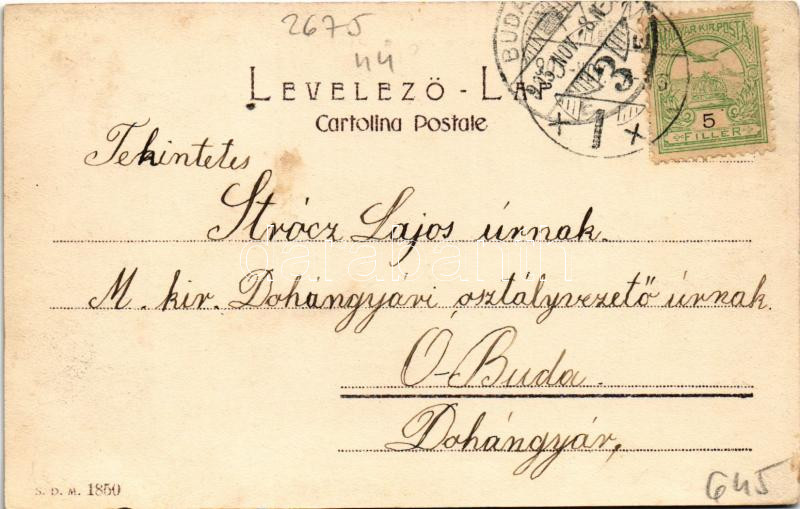 2675
44
Levelező - La
Cartolina Postale
BUDA
1
3
MAGYAR KIR. POSTA
5
FILLÉR
Tekintetes
Strócz Lajos úrnak.
darabanth
M. kir. Dohángyári osztályvezető úrnak.
Ó-Buda.
Dohángyár,
S. D. M. 1850
645